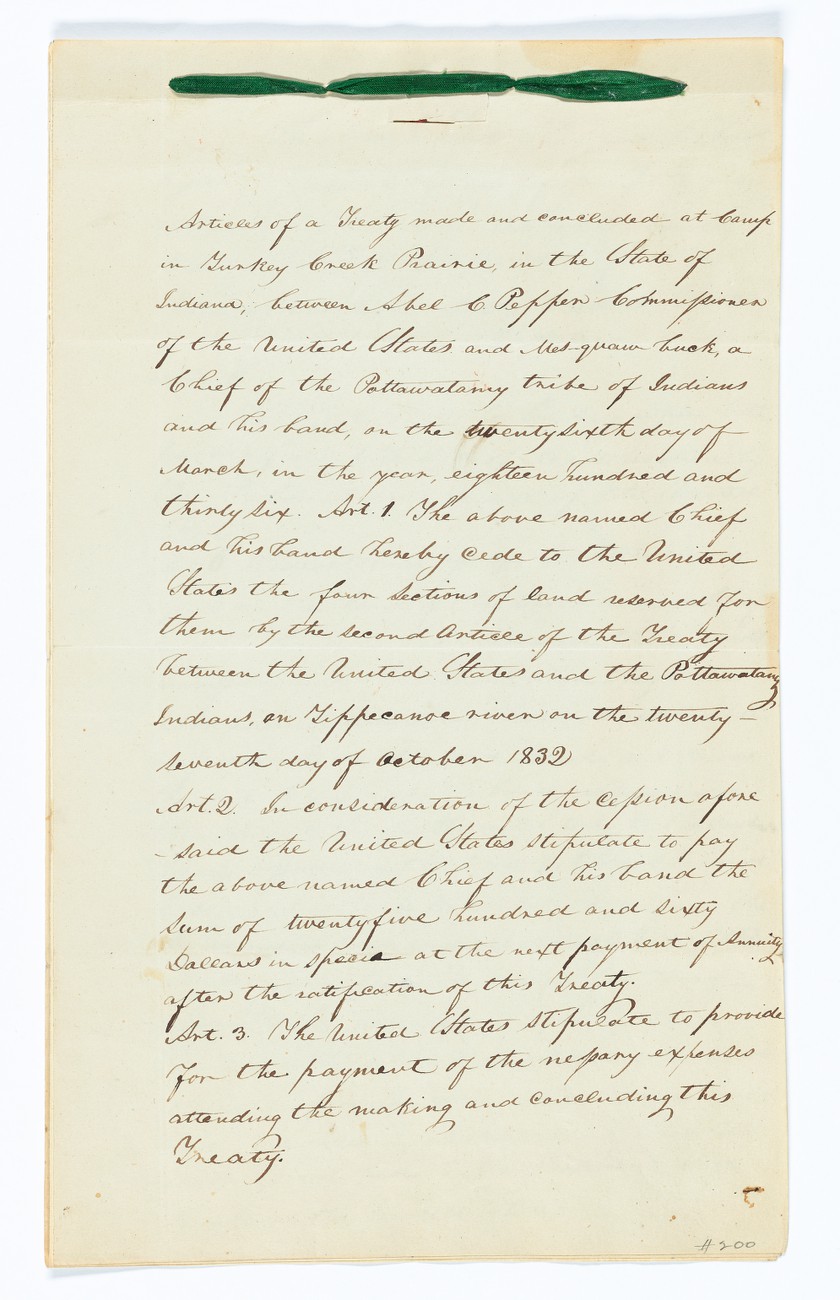 Articles of a Treaty made and concluded at Camp
in Turkey Creek Prairie, in the State of
Indiana, between Abel C. Pepper Commissioner
of the United States and Mes-quaw-buck, a
Chief of the Pottawatamy tribe of Indians
and his band, on the twenty sixth day of
March, in the year, eighteen hundred and
thirty six. Art. 1. The above named Chief
and his band hereby cede to the United
States the four sections of land reserved for
them by the second Article of the Treaty
between the United States and the Pottawatamy
Indians, on Tippecanoe river on the twenty-
seventh day of October 1832
Art. 2. In consideration of the cession afore
- said the United States stipulate to pay
the above named Chief and his band the
sum of twenty five hundred and sixty
Dollars in specie at the next payment of Annuity
after the ratification of this Treaty.
Art. 3. The United States stipulate to provide
for the payment of the nessary expenses
attending the making and concluding this
Treaty.
#200